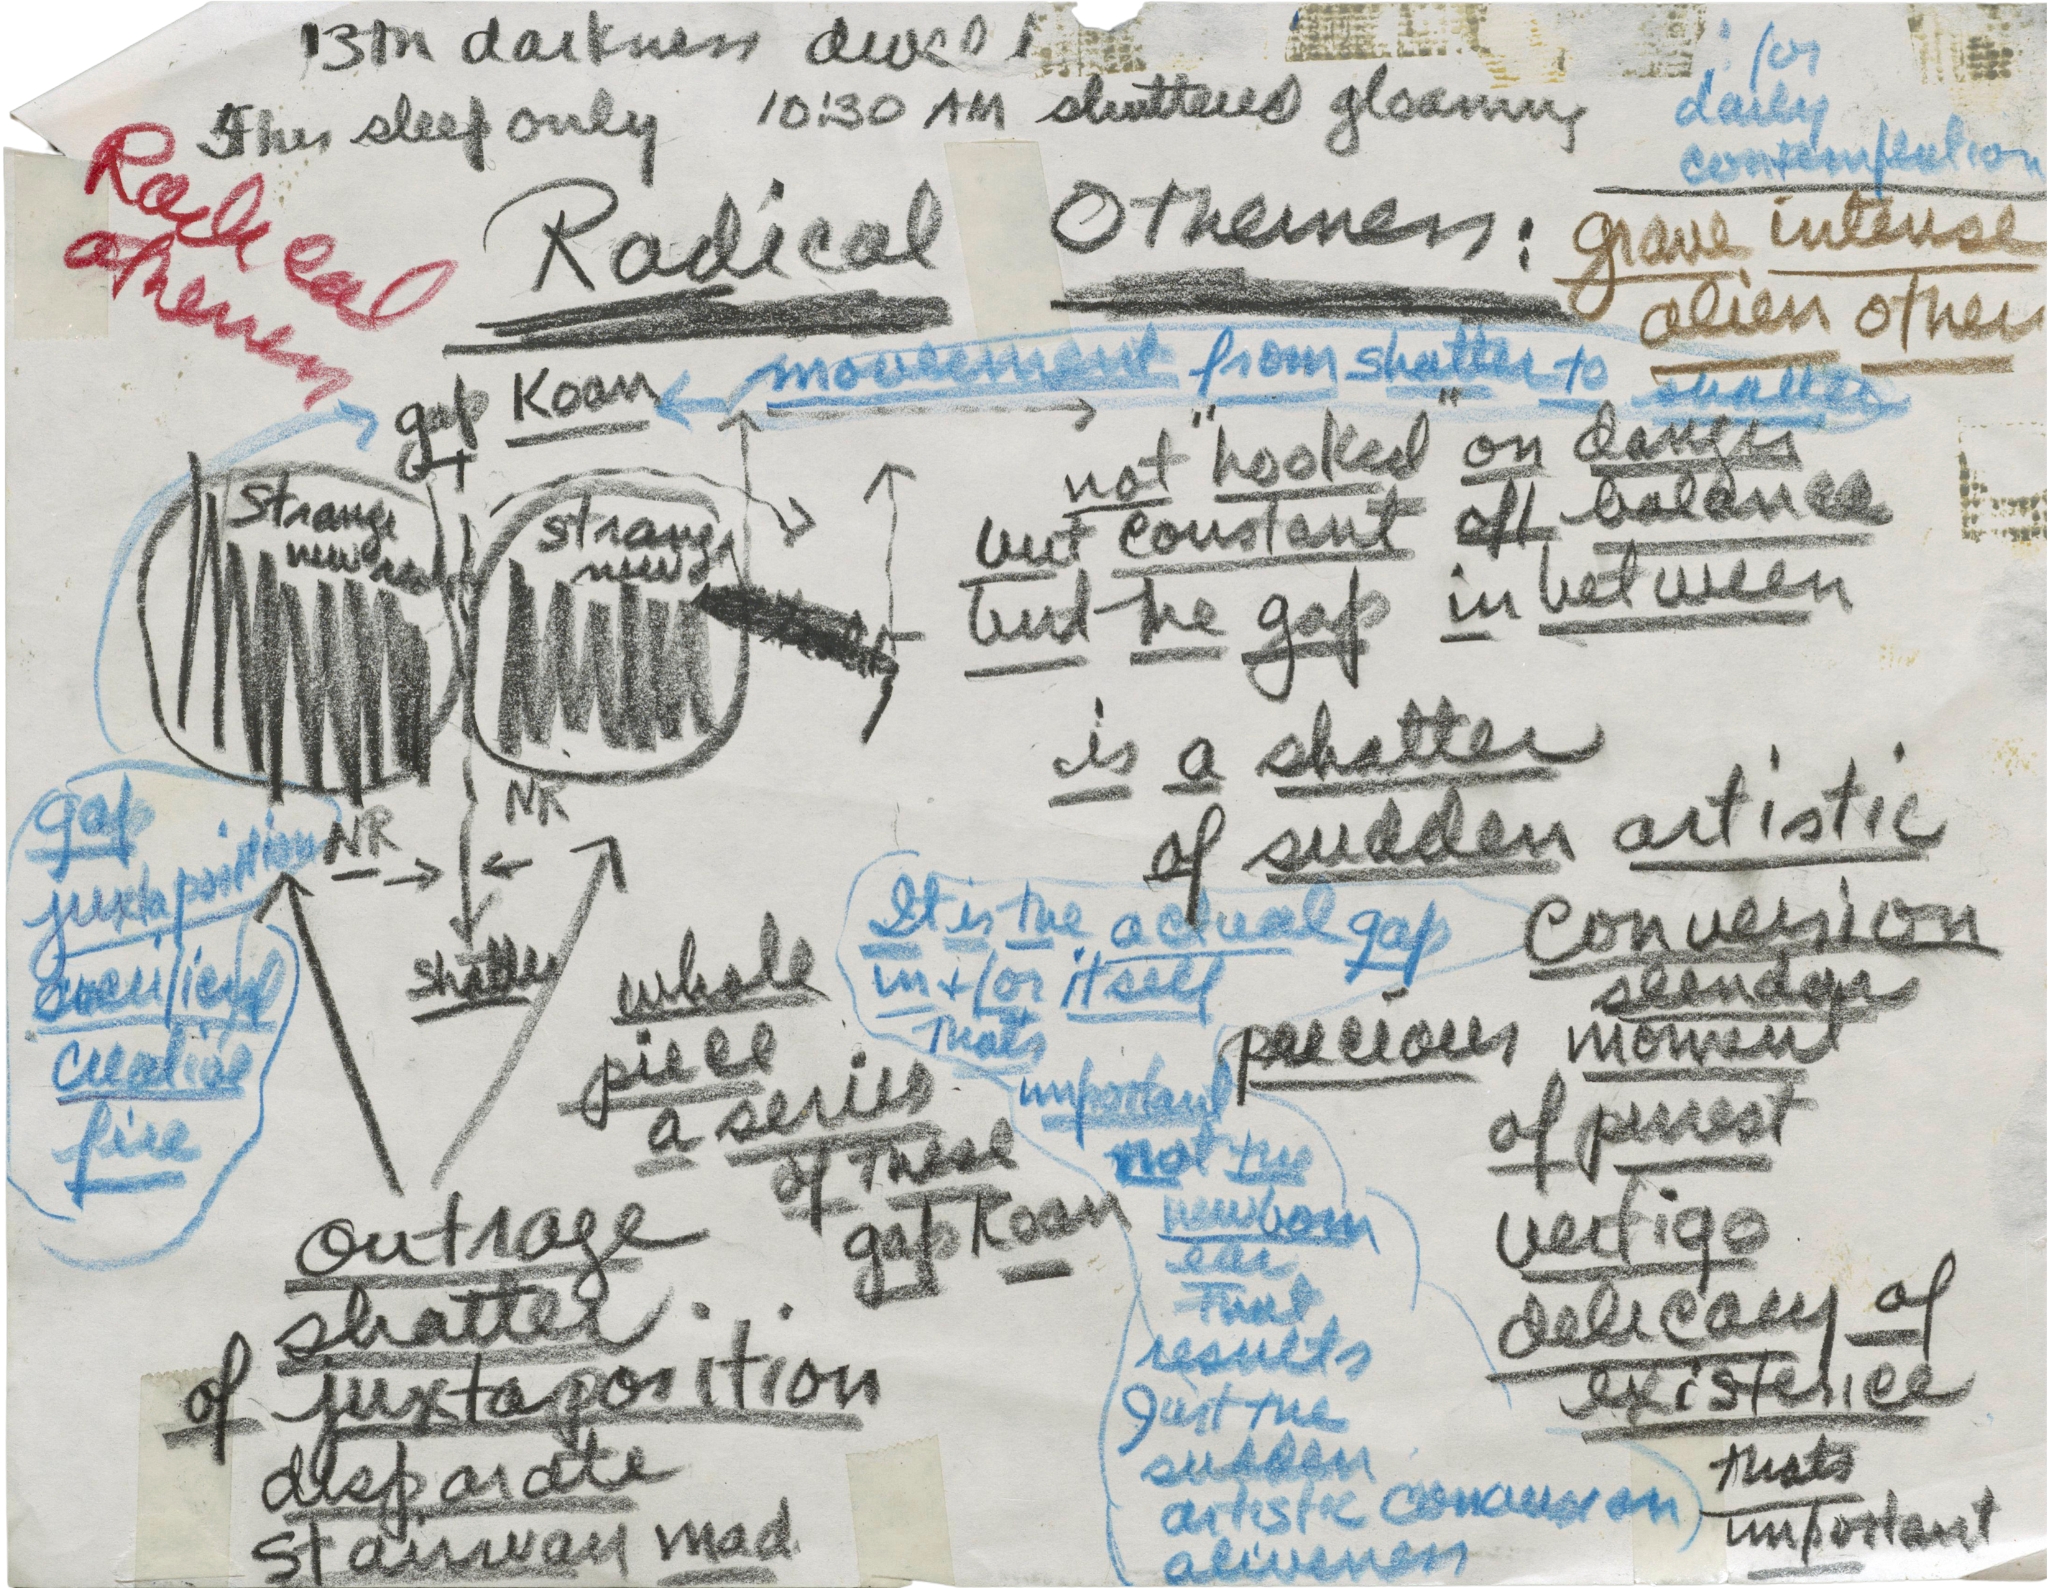 13th darkness
5 hrs sleep only 10:30 AM shattered gloaming
for
daily
contemplation
Radical
otherness
Radical Otherness:
grave intense
alien other
gap Koan
movement from shatter to shatter
not "hooked" on danger
but constant off balance
but the gap in between
is a shatter
of sudden artistic
conversion
slender
precious moment
of purest
vertigo
delicacy of
existence
thats
important
Strange
new
strange
new
NR
NR
shatter
gap
juxtaposition
sacrificial
creative
fire
whole
piece
a series
of these
gap Koan
It is the actual gap
in + for itself
thats
important
not the
newborn
ear
that
results
Just the
sudden
artistic conversion
aliveness
outrage
shatter
of juxtaposition
disparate
stairway mad